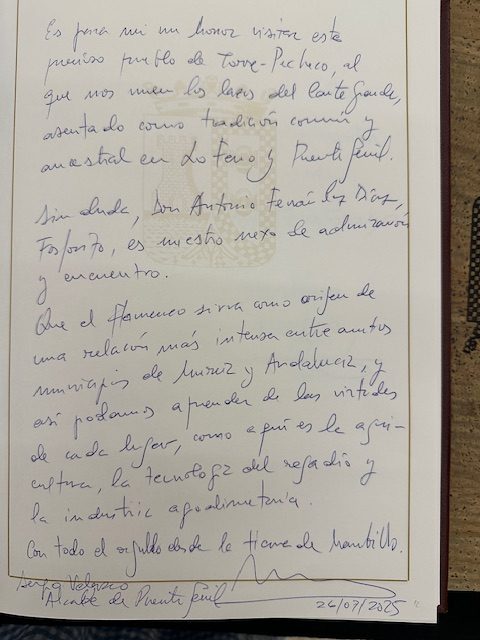 Es para mi un honor visitar este
precioso pueblo de Torre-Pacheco, al
que nos unen los lazos del Cante Grande,
asentado como tradición común y
ancestral en Lo Ferro y Puente Genil.
Sin duda, Don Antonio Fernández Díaz,
Fosforito, es nuestro nexo de admiración
y encuentro.
Que el flamenco sirva como origen de
una relación más intensa entre ambos
municipios de Murcia y Andalucía, y
así podamos aprender de las virtudes
de cada lugar, como aquí es la agri-
cultura, la tecnología del regadío y
la industria agroalimentaria.
Con todo el orgullo desde la tierra de Membrillo.
Sergio Velasco
Alcalde de Puente Genil
26/07/2025